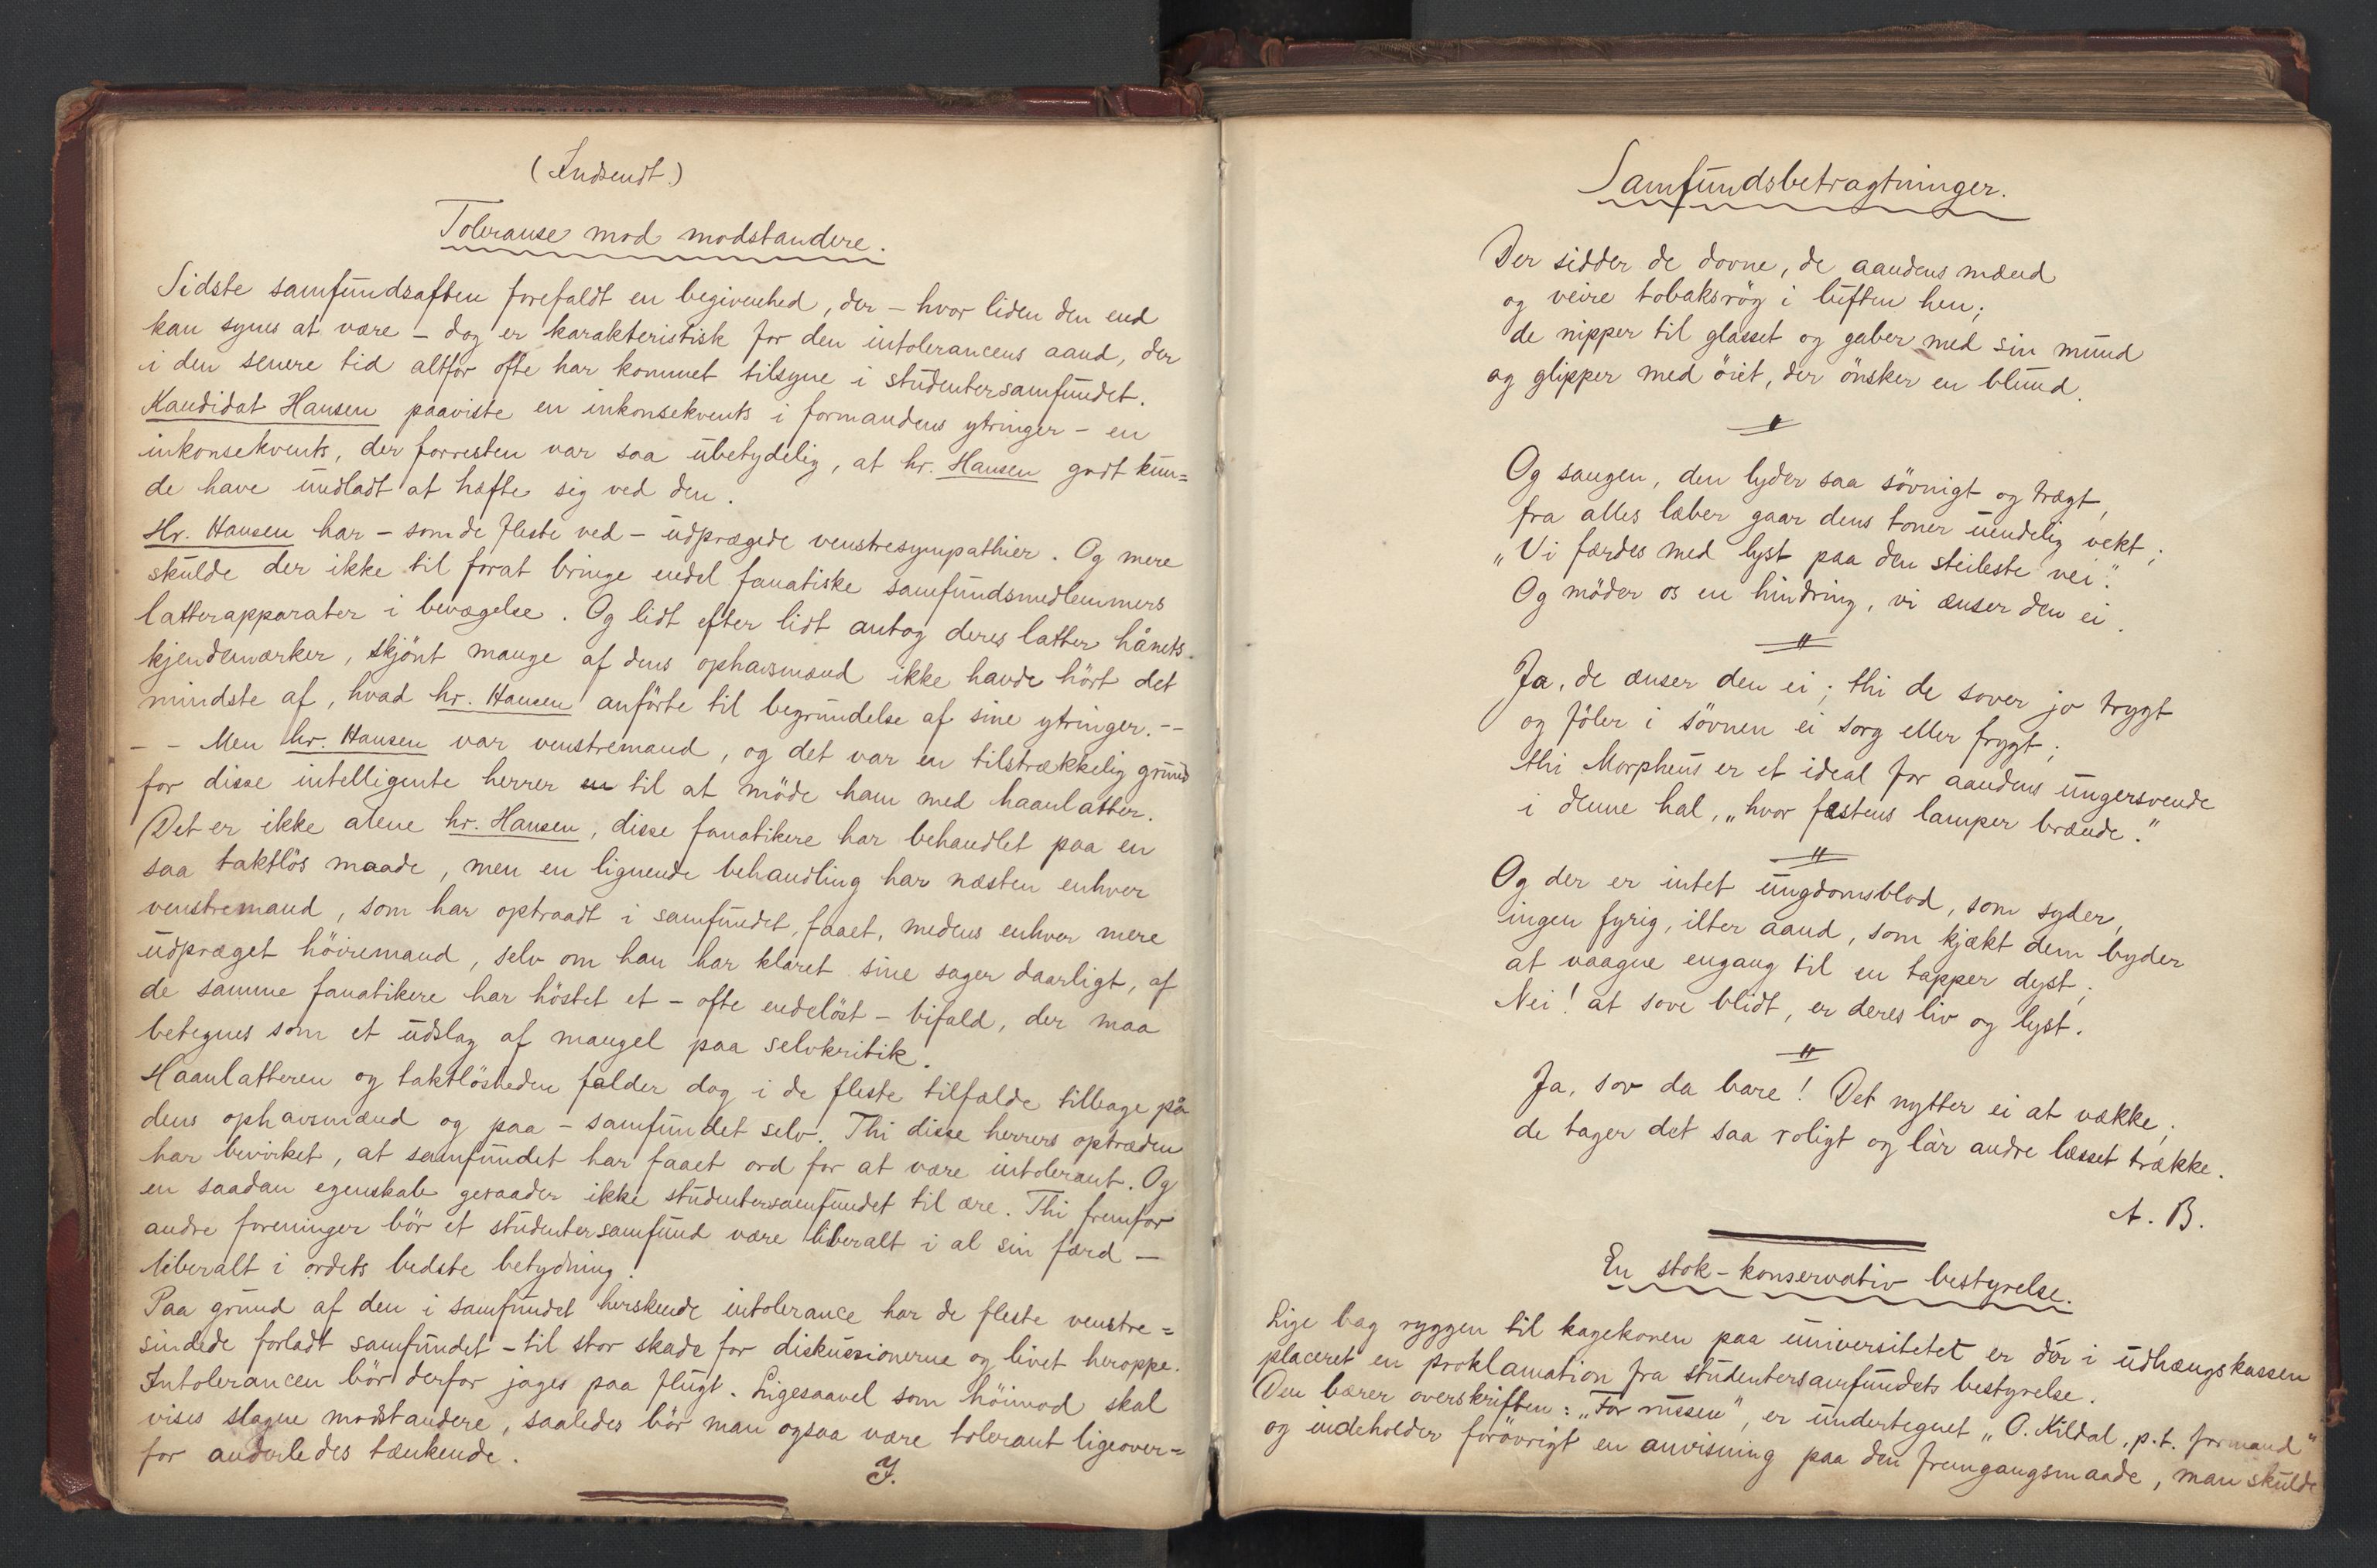 (Indsendt.)
Toleranse mod modstandere.
Sidste samfundsaften forefaldt en begivenhed, der – hvor liden den end
kan synes at være – dog er karakteristisk for den intolerancens aand, der
i den senere tid altfor ofte har kommet tilsyne i studentersamfundet.
Kandidat Hansen paaviste en inkonsekvents i formandens ytringer – en
inkonsekvents, der forresten var saa ubetydelig, at hr. Hansen godt kun=
de have undladt at hæfte sig ved den.
Hr. Hansen har – som de fleste ved – udprægede venstresympathier. Og mere
skulde der ikke til forat bringe endel fanatiske samfundsmedlemmers
latterapparater i bevægelse. Og lidt efter lidt antog deres latter hånets
kjendemærker, skjönt mange af dens ophavsmænd ikke havde hört det
mindste af, hvad hr. Hansen anförte til begrundelse af sine ytringer. – –
– – Men hr. Hansen var venstremand, og det var en tilstrækkelig grund
for disse intelligente herrer en til at möde ham med haanlatter.
Det er ikke alene hr. Hansen, disse fanatikere har behandlet paa en
saa taktlös maade, men en lignende behandling har næsten enhver
venstremand, som har optraadt i samfundet, faaet, medens enhver mere
udpræget höiremand, selv om han har klaret sine sager daarligt, af
de samme fanatikere har höstet et – ofte endelöst – bifald, der maa
betegnes som et udslag af mangel paa selvkritik.
Haanlatteren og taktlösheden falder dog i de fleste tilfælde tilbage på
dens ophavsmænd og paa – samfundet selv. Thi disse herrers optræden
har bevirket, at samfundet har faaet ord for at være intolerant. Og
en saadan egenskab geraader ikke studentersamfundet til ære. Thi fremfor
andre foreninger bör et studentersamfund være liberalt i al sin færd –
liberalt i ordets bedste betydning.
Paa grund af den i samfundet herskende intolerance har de fleste venstre=
sindede forladt samfundet – til stor skade for diskussionerne og livet heroppe.
Intolerancen bör derfor jages paa flugt. Ligesaavel som höimod skal
vises slagne modstandere, saaledes bör man ogsaa være tolerant ligeover=
for anderledes tænkende.
J.
Samfundsbetragtninger.
Der sidder de dovne, de aandens mænd
og veire tobaksrög i luften hen;
de nipper til glasset og gaber med sin mund
og glipper med öiet, der önsker en blund.
Og sangen, den lyder saa sövnigt og trægt,
fra alles læber gaar dens toner uendelig vekt;
"Vi færdes med lyst paa den steileste vei".
Og möder os en hindring, vi ænser den ei.
Ja, de ænser den ei; thi de sover jo trygt
og föler i sövnen ei sorg eller frygt;
thi Morpheus er et ideal for aandens ungersvende
i denne hal, "hvor festens lamper brænde."
Og der er intet ungdomsblod, som syder,
ingen fyrig, ilter aand, som kjækt dem byder
at vaagne engang til en tapper dyst;
Nei! at sove blidt, er deres liv og lyst.
Ja, sov da bare! Det nytter ei at vække;
de tager det saa roligt og lår andre læsset trække.
A. B.
En stok-konservativ bestyrelse.
Lige bag ryggen til kagekonen paa universitetet er der i udhængskassen
placeret en proklamation fra studentersamfundets bestyrelse.
Den bærer overskriften: "For russen", er undertegnet "O. Kildal, p.t. formand"
og indeholder forövrigt en anvisning paa den fremgangsmaade, man skulde